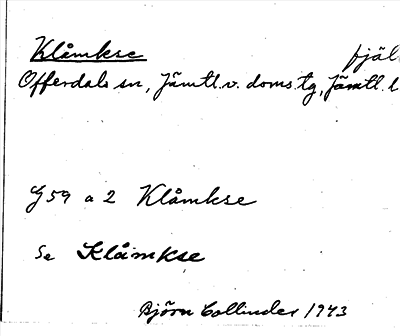 Klåmkse fjäl
Offerdals sn, Jämtl. v. doms. tg, Jämtl. l
G 59 a 2 Klåmkse
Se Klåmkse
Björn Collinder 1943